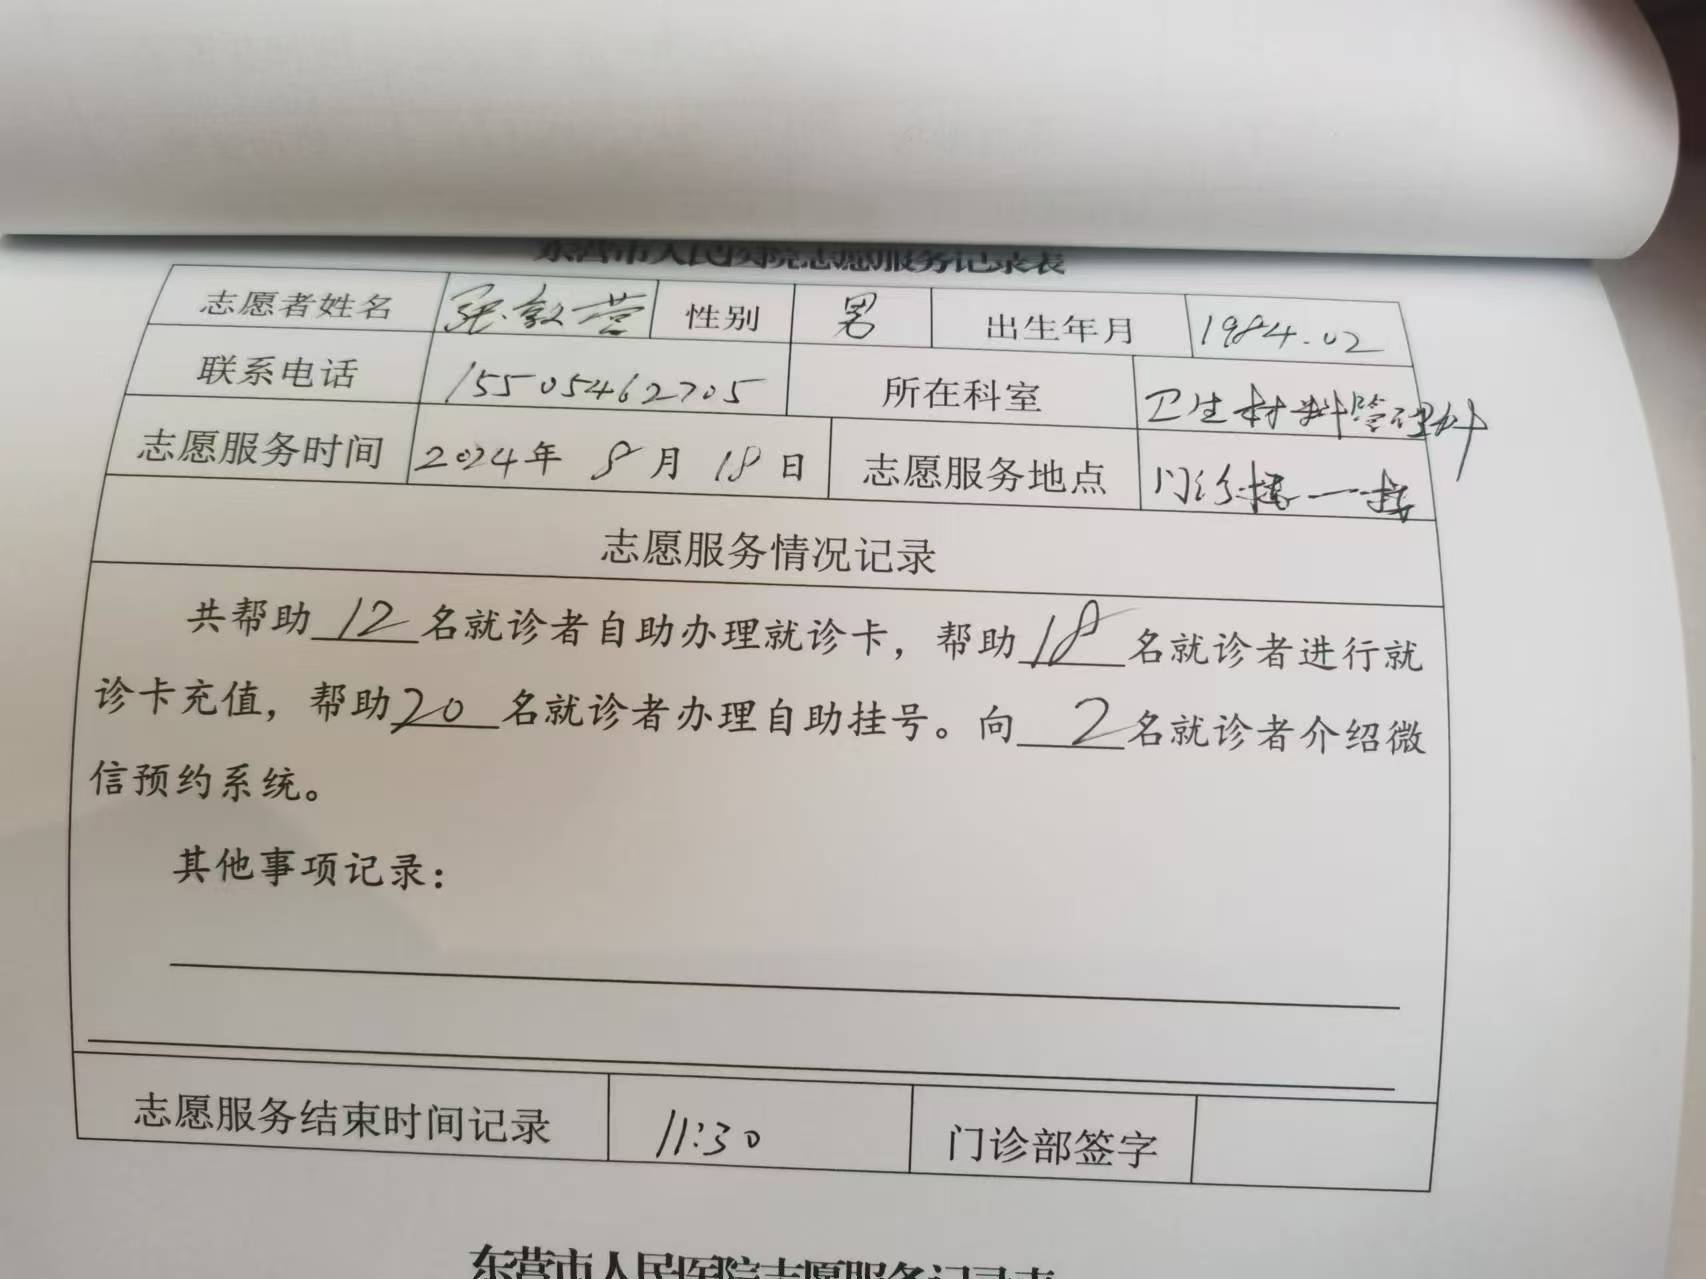 东营市人民医院志愿服务记录表
志愿者姓名 张敦营 性别 男 出生年月 1984.02
联系电话 15505462705 所在科室 卫生材料管理科
志愿服务时间 2024年 8月 18日 志愿服务地点 门诊楼一楼
志愿服务情况记录
共帮助12名就诊者自助办理就诊卡，帮助18名就诊者进行就
诊卡充值，帮助20名就诊者办理自助挂号。向2名就诊者介绍微
信预约系统。
其他事项记录：
志愿服务结束时间记录 11:30 门诊部签字
东营市人民医院志愿服务记录表